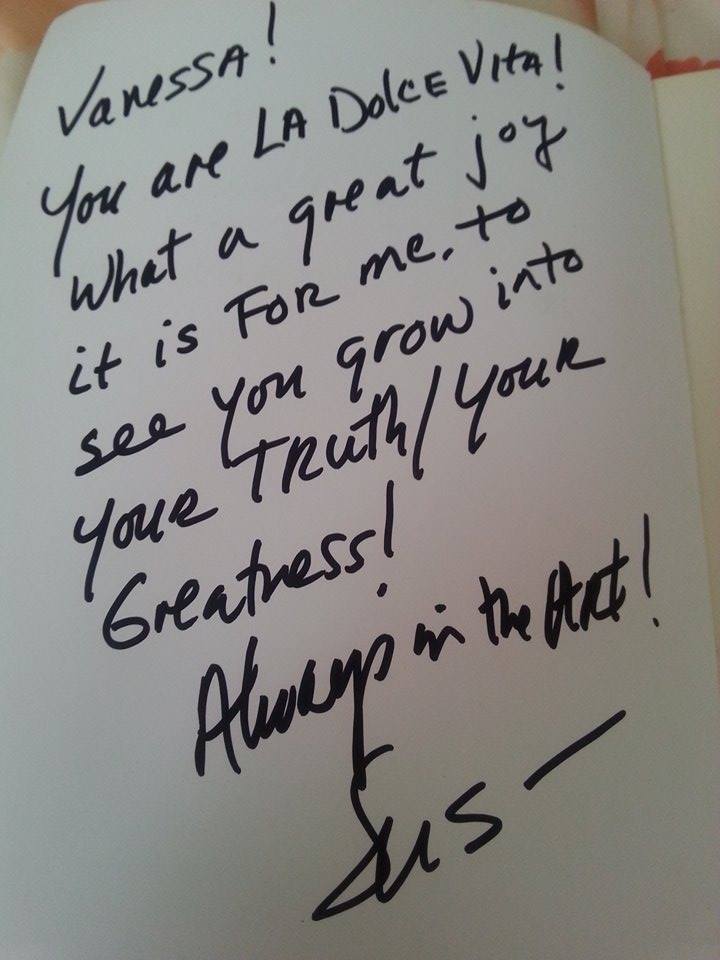 Vanessa!
You are LA Dolce Vita!
What a great joy
it is For me. to
see you grow into
your Truth/your
Greatness!
Always in the Art!